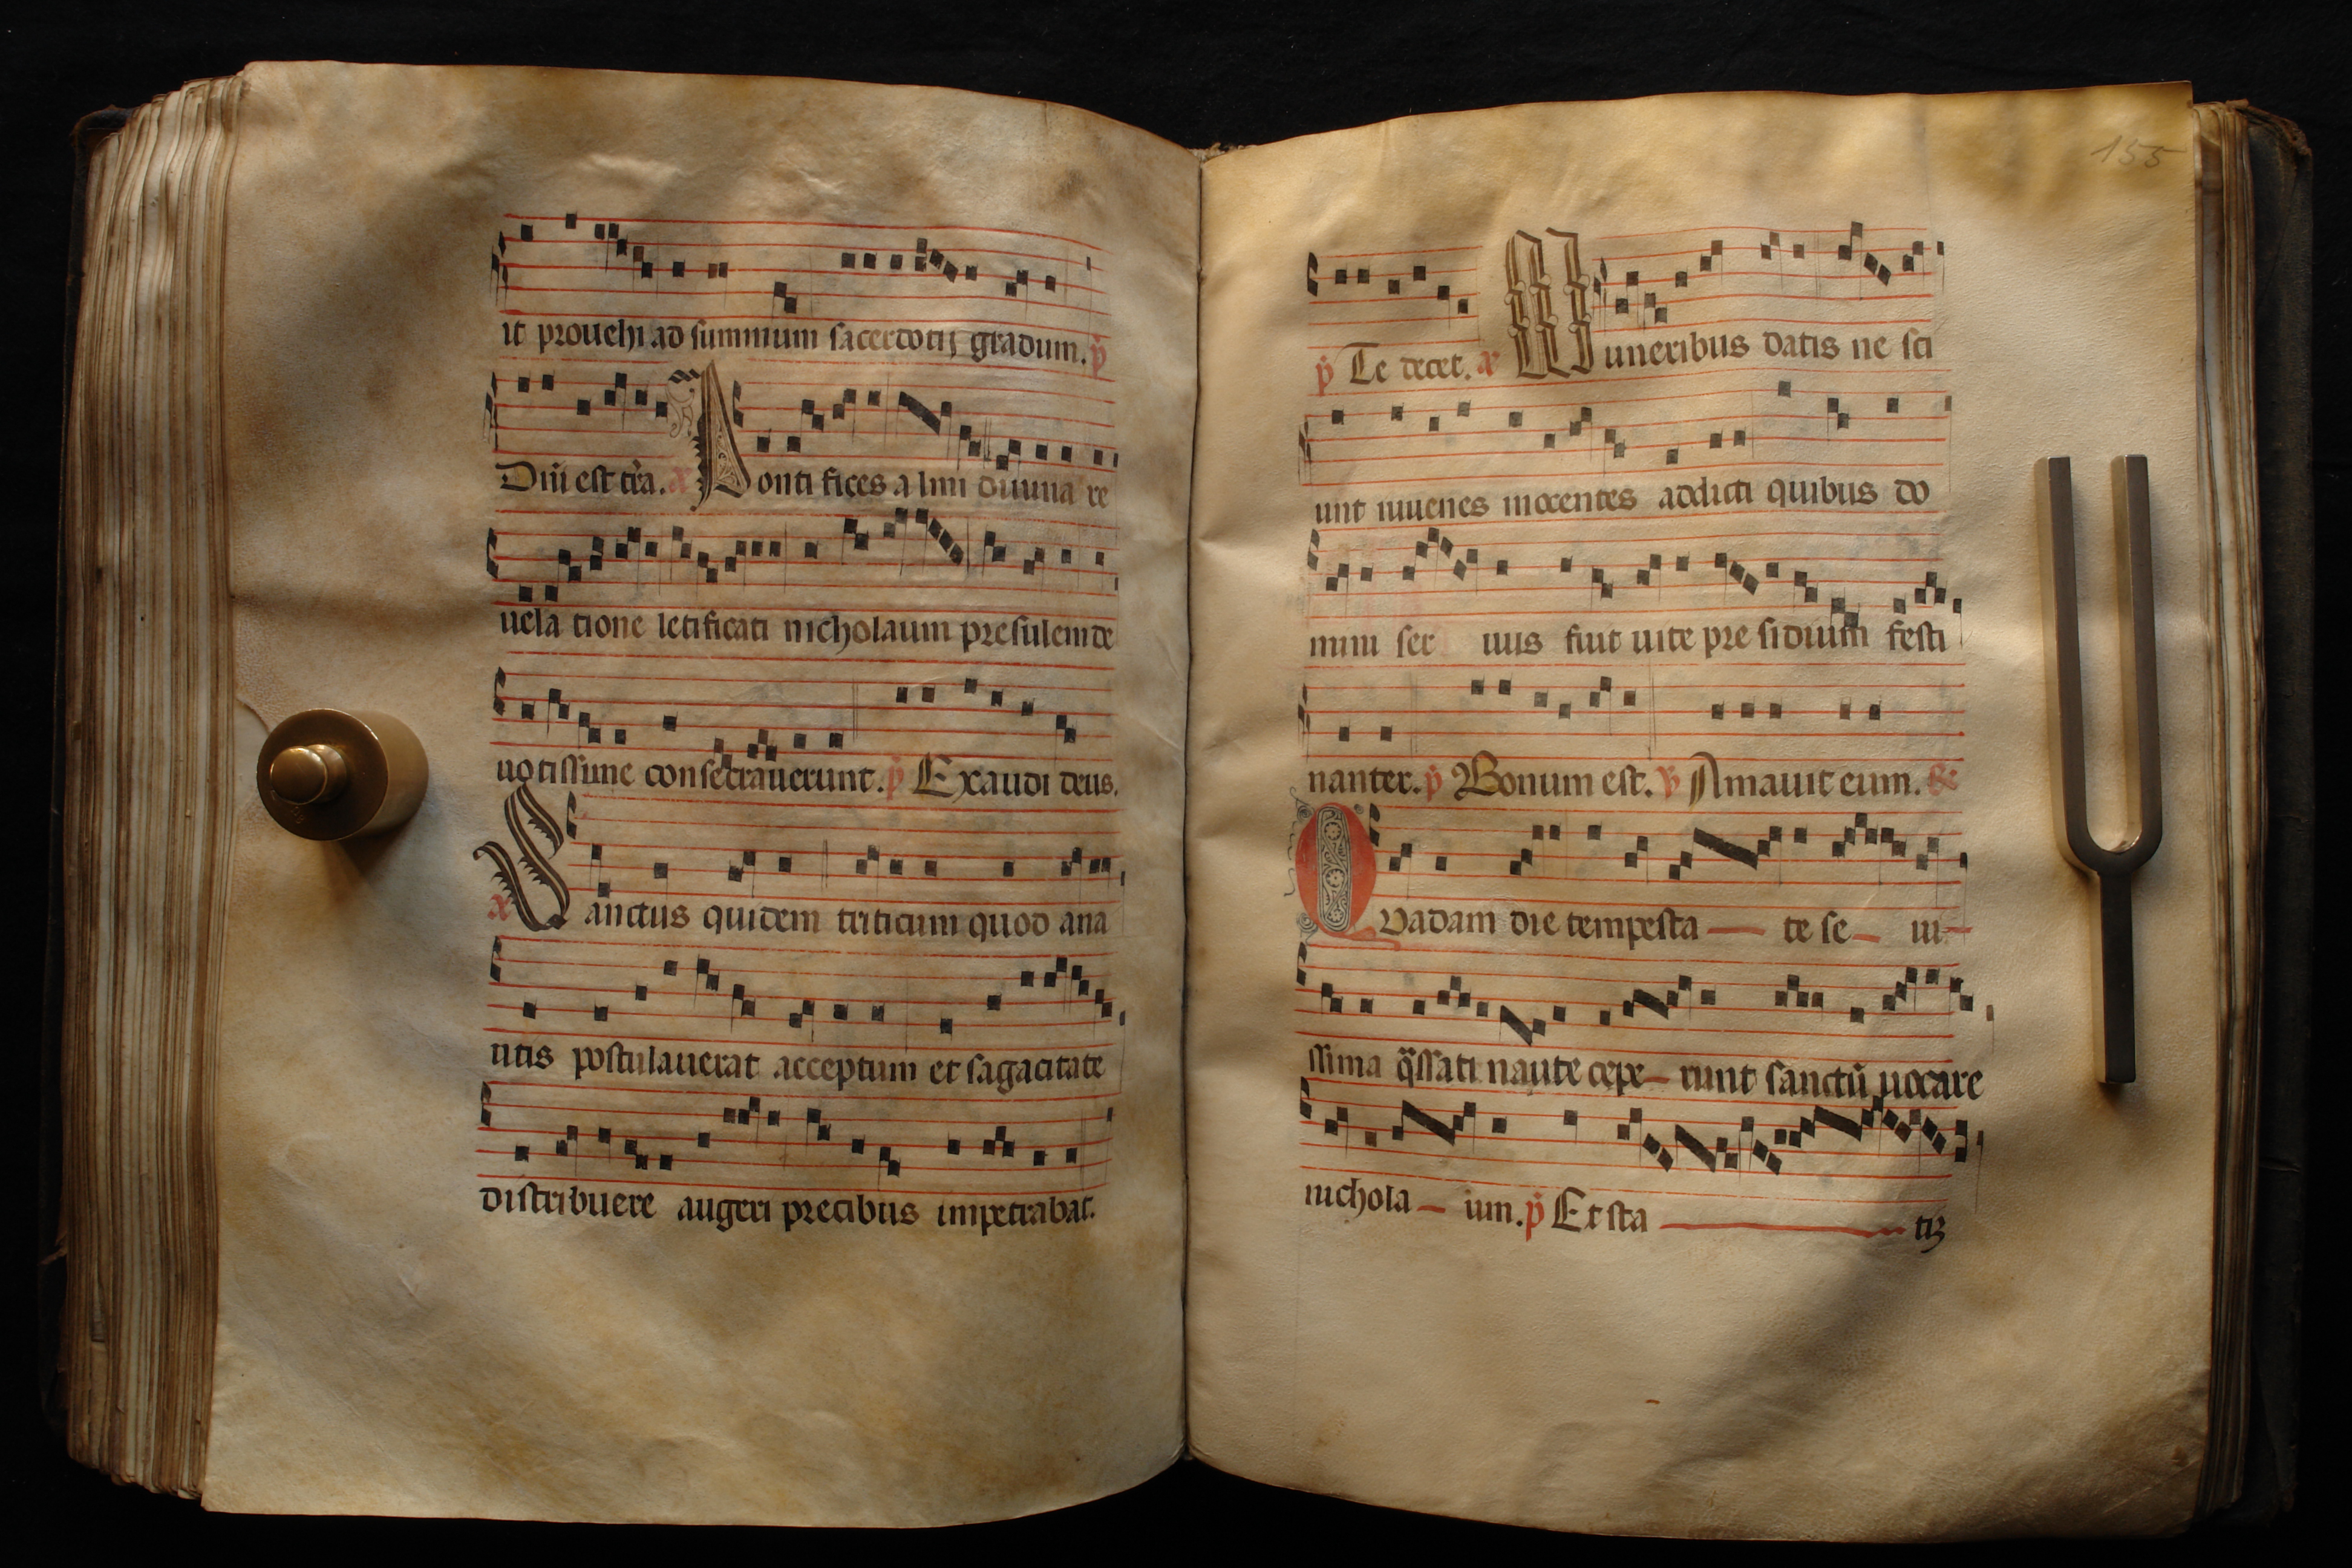 it prouehi ad summum sacerdotij gradum. p̄
Dn̄i est tr̄a. a Pontifices almi diuina re
uela tione letificati nicholaum presulem de
uotissime consecrauerunt. p̄ Exaudi deus.
a Sanctus quidem triticum quod ana
utis postulauerat acceptum et sagacitate
distribuere augeri precibus impetrabat.
155
p̄ Te decet. a Muneribus datis ne sci
unt iuuenes inocentes addicti quibus do
mini ser uus fuit uite pre sidium festi
nanter. p̄ Bonum est. v̄ Amauit eum. R
Quadam die tempesta — te se — ui —
ssima q̄ssati naute cepe — runt sanctū uocare
nichola — um. p̄ Et sta — tiꝫ